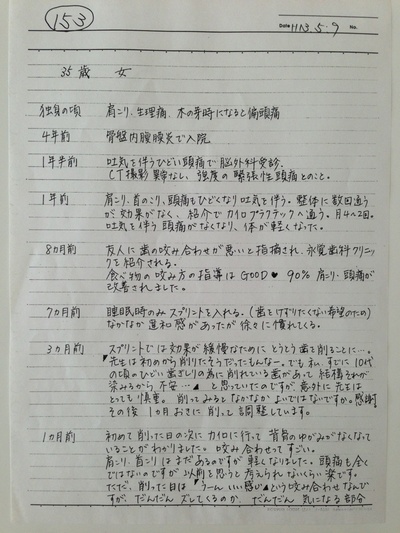 153
Date H13.5.9 No.
35歳 女
独身の頃 肩こり、生理痛、木の芽時になると偏頭痛
4年前 骨盤内腹膜炎で入院
1年半前 吐気を伴うひどい頭痛で脳外科受診.
CT撮影 異常なし、強度の緊張性頭痛とのこと。
1年前 肩こり、首のこり、頭痛もひどくなり吐気を伴う。整体に数回通う
が効果がなく、紹介でカイロプラクテックへ通う。月4〜2回。
吐気を伴う頭痛がなくなり、体が軽くなった。
8カ月前 友人に歯の咬み合わせが悪いと指摘され、永覚歯科クリニッ
クを紹介される.
食べ物の咬み方の指導はGOOD♥ 90% 肩こり、頭痛が
改善されました。
7カ月前 睡眠時のみスプリントを入れる。(歯をけずりたくない希望のため)
なかなか違和感があったが徐々に慣れてくる。
3カ月前 スプリントでは効果が緩慢なためにとうとう歯を削ることに…。
先生は初めから削りたそうだったもんなー。でも私、すでに10代
の頃のひどい歯ぎしりの為に削れている歯があって結構それが
染みるから不安…と思っていたのですが、意外に先生は
とても慎重。削ってみるとなかなかよいではないですか。感謝
その後1カ月おきに削って調整しています。
1カ月前 初めて削った日の次にカイロに行って背骨のゆがみがなくなって
いることがわかりました。咬み合わせってすごい。
肩こり、首こりはまだあるのですが軽くなりました。頭痛も全く
ではないのですが以前を思うと考えられないくらい楽です。
ただ、削った日は「うーん、いい感じ」という咬み合わせなんで
すが、だんだんズレてくるのか、だんだん気になる部分